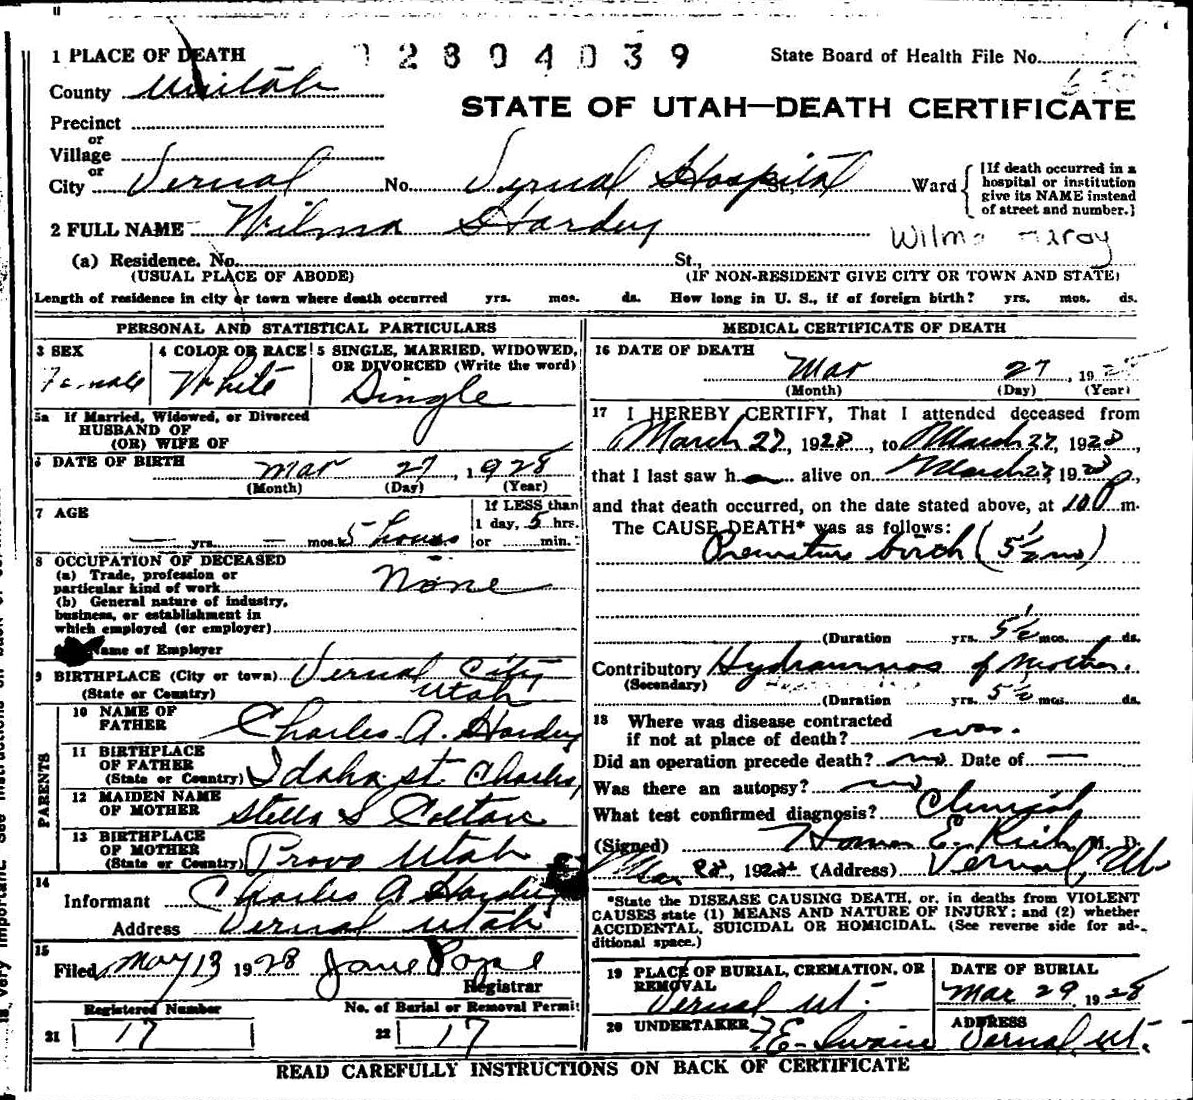 1 PLACE OF DEATH
2 8 0 4 0 3 9
State Board of Health File No.
County Uintah
STATE OF UTAH—DEATH CERTIFICATE
Precinct
or
Village
or
City Vernal No. Vernal Hospital Ward
[If death occurred in a hospital or institution give its NAME instead of street and number.]
2 FULL NAME Wilma Hardy
Wilma
(a) Residence. No. St.,
(USUAL PLACE OF ABODE) (IF NON-RESIDENT GIVE CITY OR TOWN AND STATE)
Length of residence in city or town where death occurred yrs. mos. ds. How long in U. S., if of foreign birth? yrs. mos. ds.
PERSONAL AND STATISTICAL PARTICULARS
3 SEX Female
4 COLOR OR RACE White
5 SINGLE, MARRIED, WIDOWED, OR DIVORCED (Write the word) Single
5a If Married, Widowed, or Divorced
HUSBAND OF
(OR) WIFE OF
6 DATE OF BIRTH Mar 27, 1928
(Month) (Day) (Year)
7 AGE — yrs. — mos. 5 hours
If LESS than
1 day, 5 hrs.
or min.
8 OCCUPATION OF DECEASED
(a) Trade, profession or
particular kind of work None
(b) General nature of industry,
business, or establishment in
which employed (or employer)
Name of Employer
9 BIRTHPLACE (City or town) Vernal City
(State or Country) Utah
PARENTS
10 NAME OF FATHER Charles A. Hardy
11 BIRTHPLACE OF FATHER
(State or Country) Idaho St. Charles,
12 MAIDEN NAME OF MOTHER Stella S Colton
13 BIRTHPLACE OF MOTHER
(State or Country) Provo Utah
14
Informant Charles A Hardy
Address Vernal Utah
15
Filed May 13 1928 Jane Pope
Registrar
Registered Number No. of Burial or Removal Permit
21 17 22 17
MEDICAL CERTIFICATE OF DEATH
16 DATE OF DEATH
Mar 27, 1928
(Month) (Day) (Year)
17 I HEREBY CERTIFY, That I attended deceased from
March 27, 1928, to March 27, 1928
that I last saw h alive on March 27 1928,
and that death occurred, on the date stated above, at m.
The CAUSE DEATH* was as follows:
Premature birth (5½ mo)
(Duration yrs. 5½ mos. ds.
Contributory Hydramnios of mother.
(Secondary)
(Duration yrs. 5½ mos. ds.
18 Where was disease contracted
if not at place of death? was.
Did an operation precede death? no. Date of —
Was there an autopsy? no
What test confirmed diagnosis? Clinical
(Signed) Homer E. Rich M. D.
Mar 28, 1928 (Address) Vernal, Ut
*State the DISEASE CAUSING DEATH, or, in deaths from VIOLENT
CAUSES state (1) MEANS AND NATURE OF INJURY; and (2) whether
ACCIDENTAL, SUICIDAL OR HOMICIDAL. (See reverse side for ad-
ditional space.)
19 PLACE OF BURIAL, CREMATION, OR REMOVAL Vernal Ut.
DATE OF BURIAL Mar 29, 1928
20 UNDERTAKER E. Swain
ADDRESS Vernal, Ut.
READ CAREFULLY INSTRUCTIONS ON BACK OF CERTIFICATE